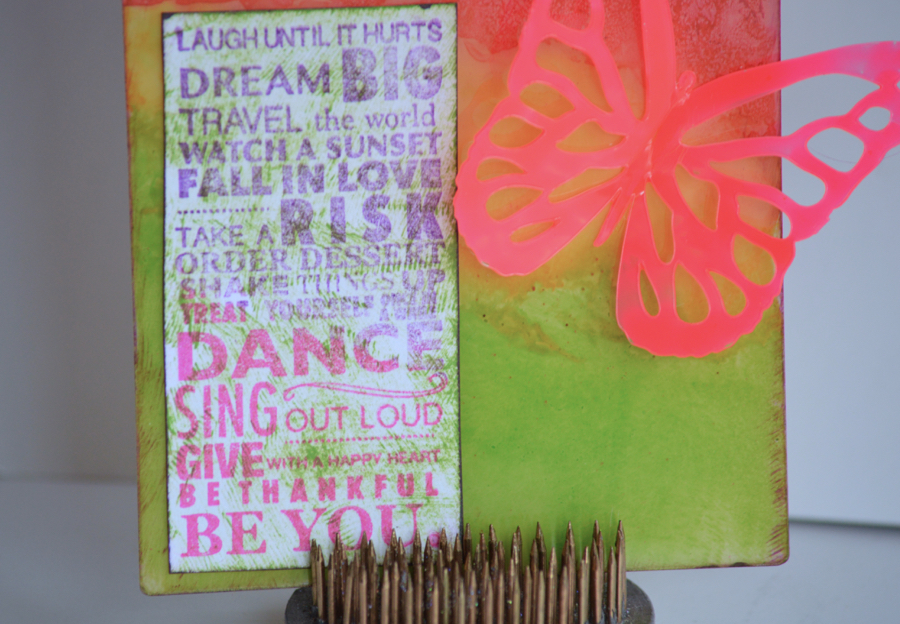 LAUGH UNTIL IT HURTS
DREAM BIG
TRAVEL the world
WATCH A SUNSET
FALL IN LOVE
TAKE A RISK
ORDER DESSERT
SHAKE THINGS UP
TREAT YOURSELF
DANCE
SING OUT LOUD
GIVE WITH A HAPPY HEART
BE THANKFUL
BE YOU.